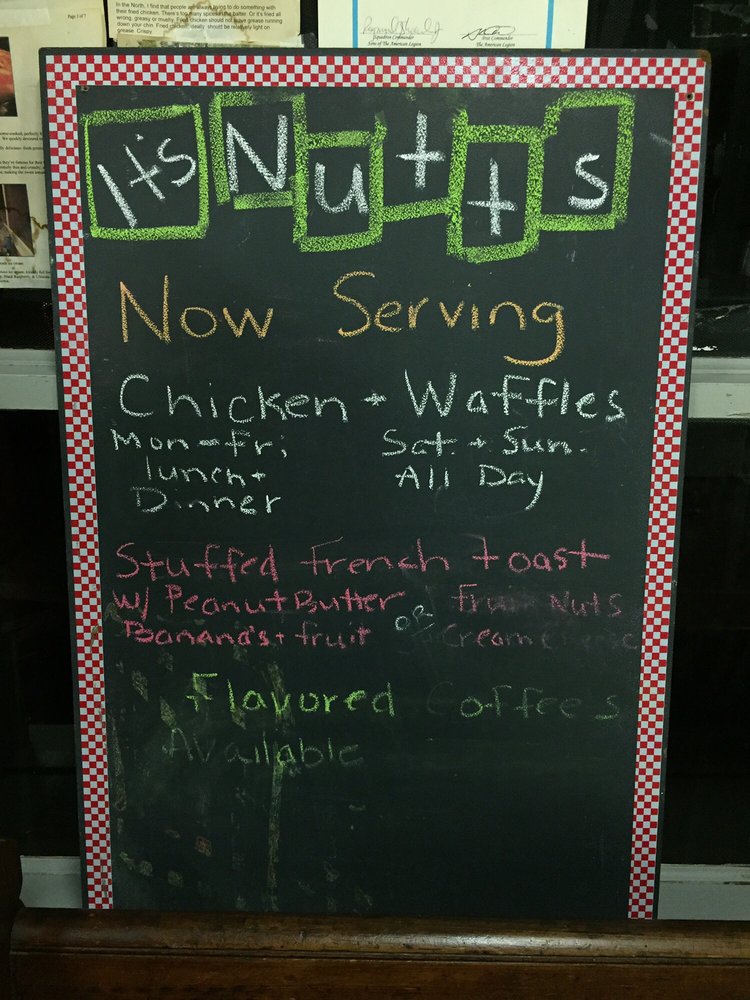 Page 1 of 7
In the North, I find that people are always trying to do something with
their fried chicken. There's too many spices in the batter. Or it's fried all
wrong, greasy or mushy. Fried chicken should not leave grease running
down your chin. Fried chicken ideally should be relatively light on
grease. Crispy
Squadron Commander
Sons of The American Legion
Post Commander
The American Legion
It's Nutts
Now Serving
Chicken + Waffles
Mon-Fri Sat. + Sun.
lunch + All Day
Dinner
Stuffed french toast
w/ Peanut Butter OR Fruit Nuts
Banana's + fruit Cream Cheese
Flavored Coffees
Available